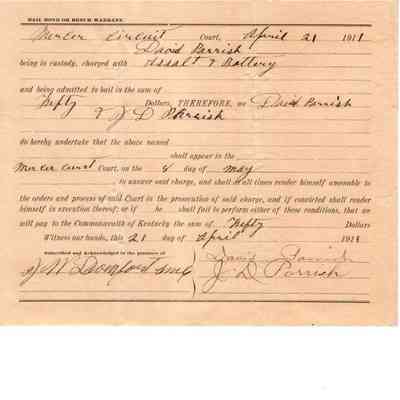 BAIL BOND OR BENCH WARRANT.
Mercer Circuit Court, April 21 1911
David Parrish
being in custody, charged with Assalt & Battery
and being admitted to bail in the sum of
Fifty Dollars, THEREFORE, we David Parrish
& J D Parrish
do hereby undertake that the above named
shall appear in the
Mercer Court Court, on the 6 day of may
to answer said charge, and shall at all times render himself amenable to
the orders and process of said Court in the prosecution of said charge, and if convicted shall render
himself in execution thereof; or if he shall fail to perform either of these conditions, that we
will pay to the Commonwealth of Kentucky the sum of Fifty Dollars
Witness our hands, this 21 day of April 1911
Subscribed and Acknowledged in the presence of
David Parrish
J W
J D Parrish